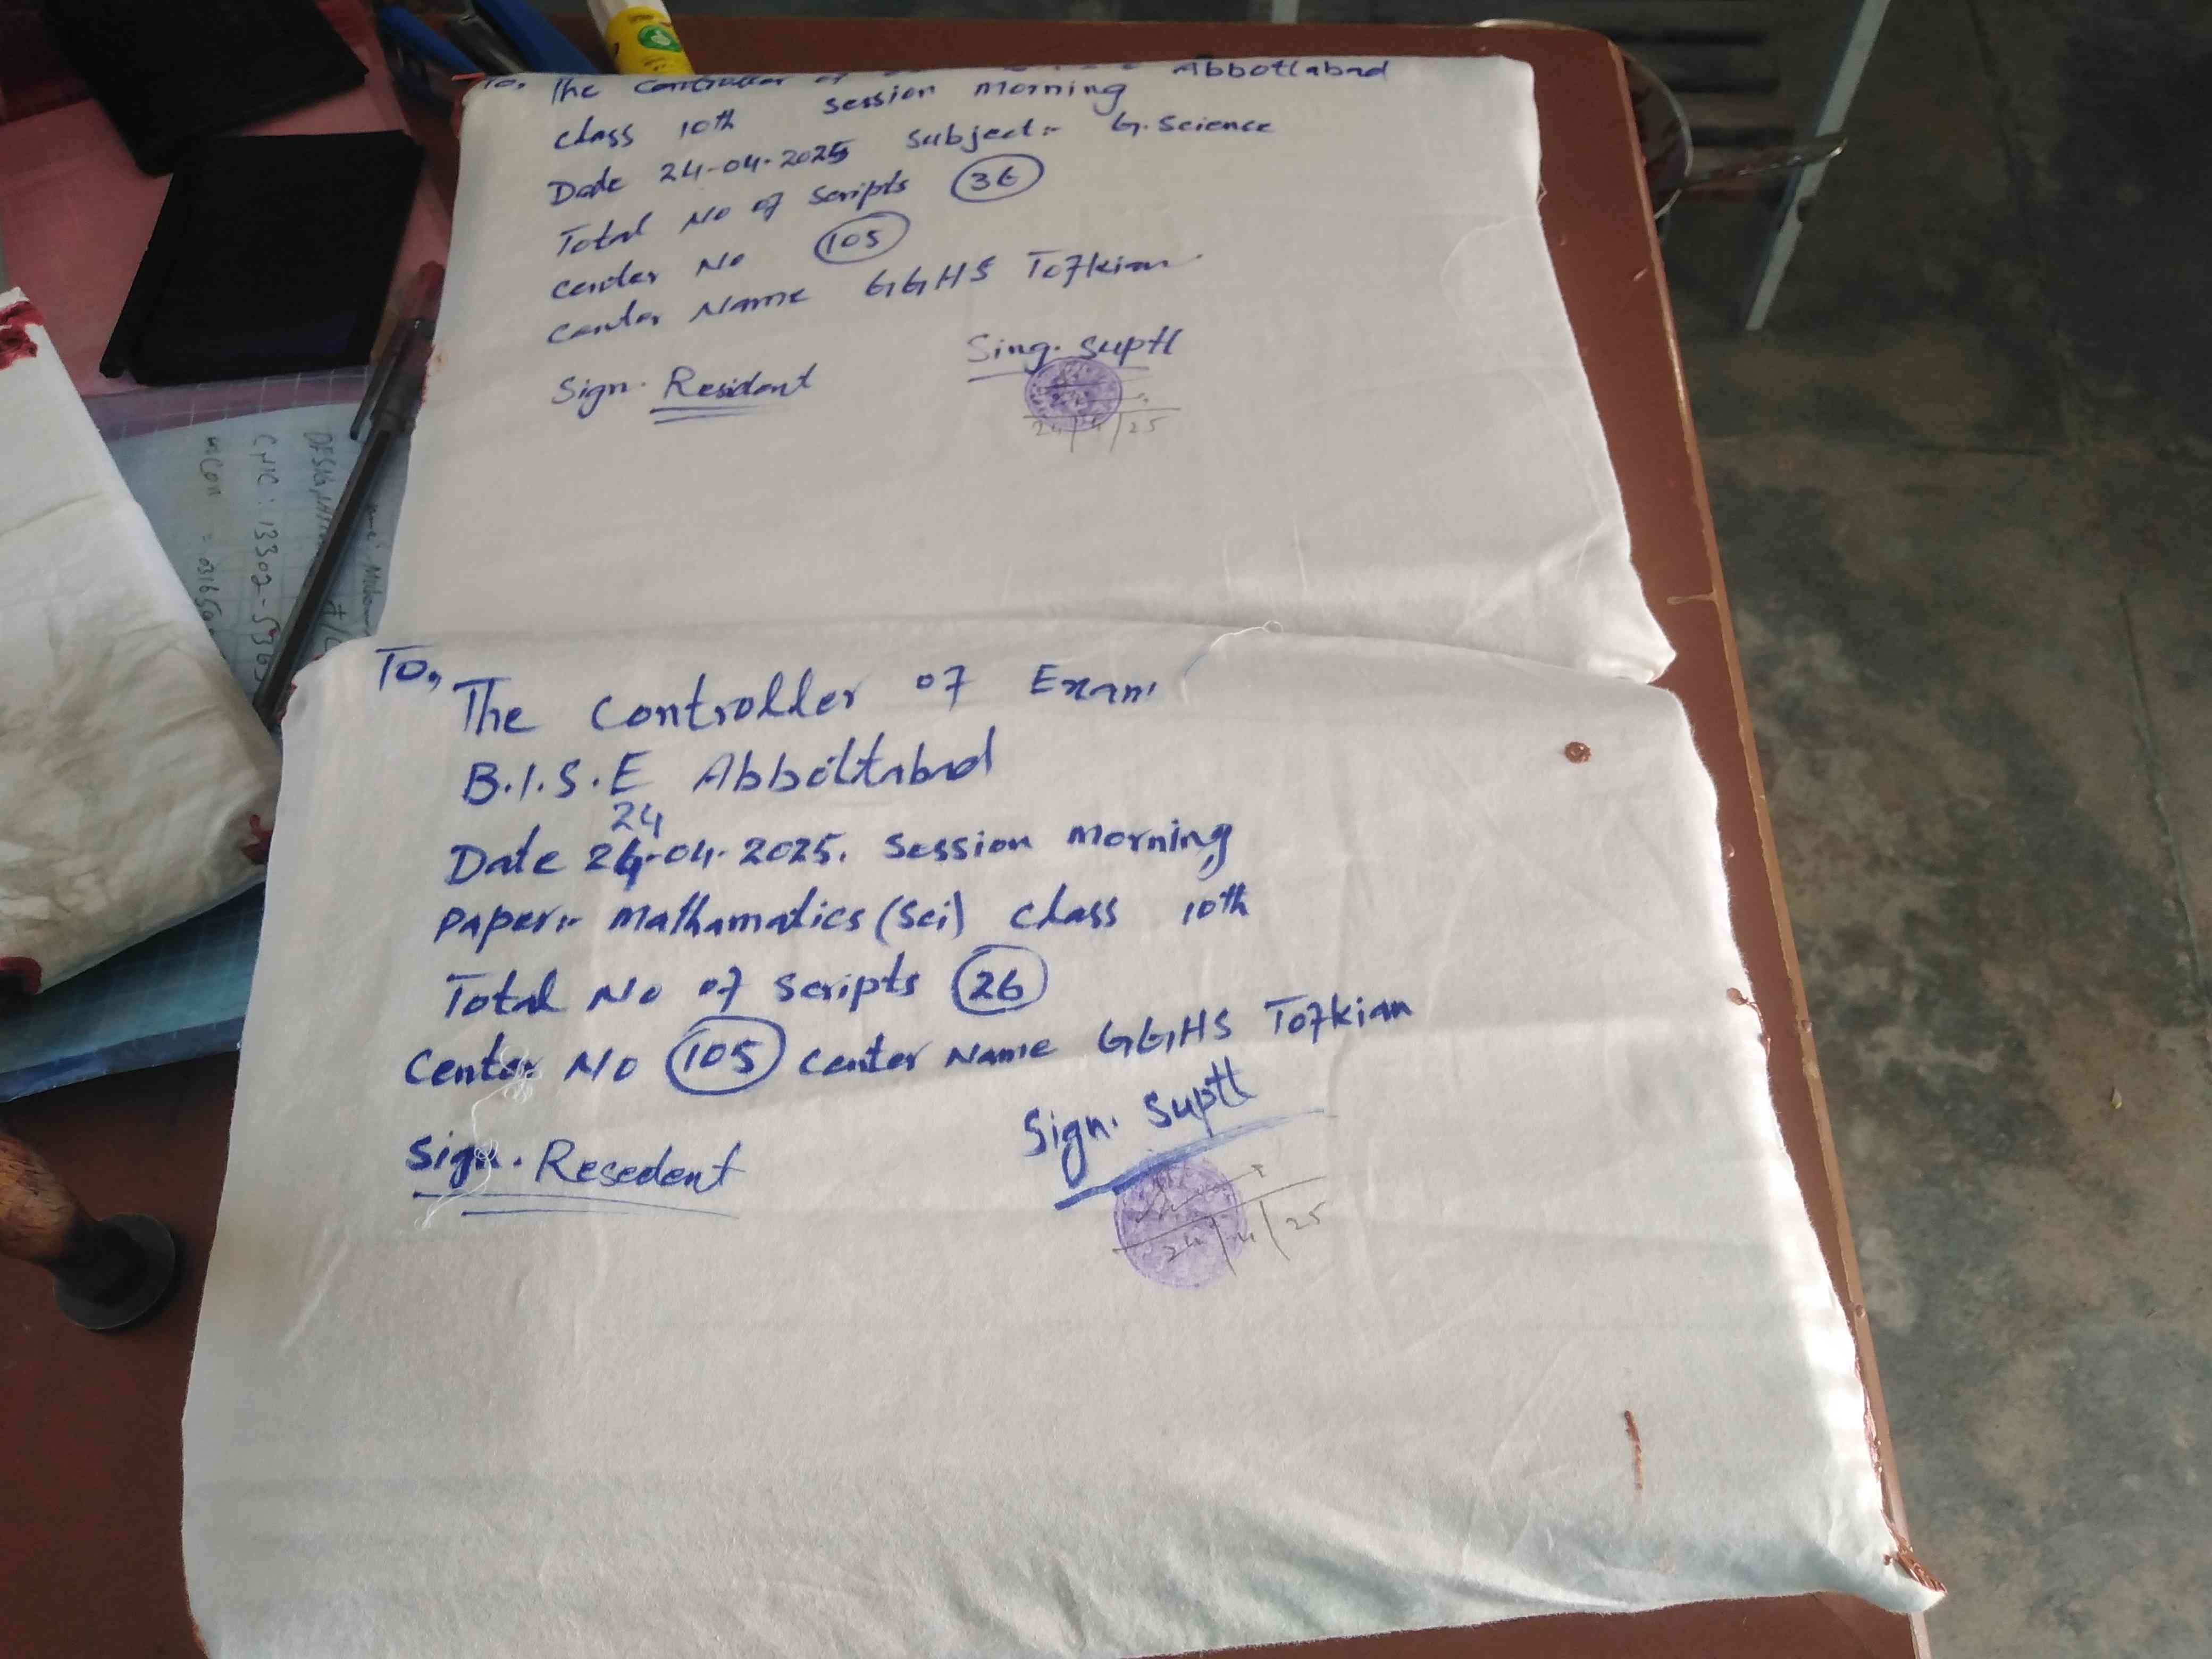 To, The Controller of Abbottabad
class 10th session morning
Date 24-04-2025 Subject:- G.Science
Total No of Scripts 36
Center No 105
Center Name GGHS Tofkian
Sign. Resident
Sing. Suptt
24/4/25
To,
The Controller of Exam
B.I.S.E Abbottabad
24
Date 24-04-2025. Session Morning
Paper:- Mathamatics (Sci) Class 10th
Total No of Scripts 26
Center No 105 Center Name GGHS Tofkian
Sign. Resedent
Sign. Suptt
24/4/25
CNIC: 13302-5363